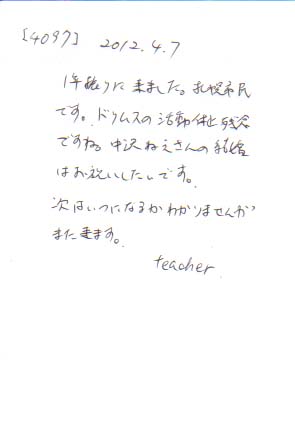 [4097] 2012.4.7
1年振りに来ました。札幌市民
です。ドリムスの活動休止残念
ですね。中沢ねえさんの結婚
はお祝いしたいです。
次はいつになるかわかりませんが
また来ます。
teacher